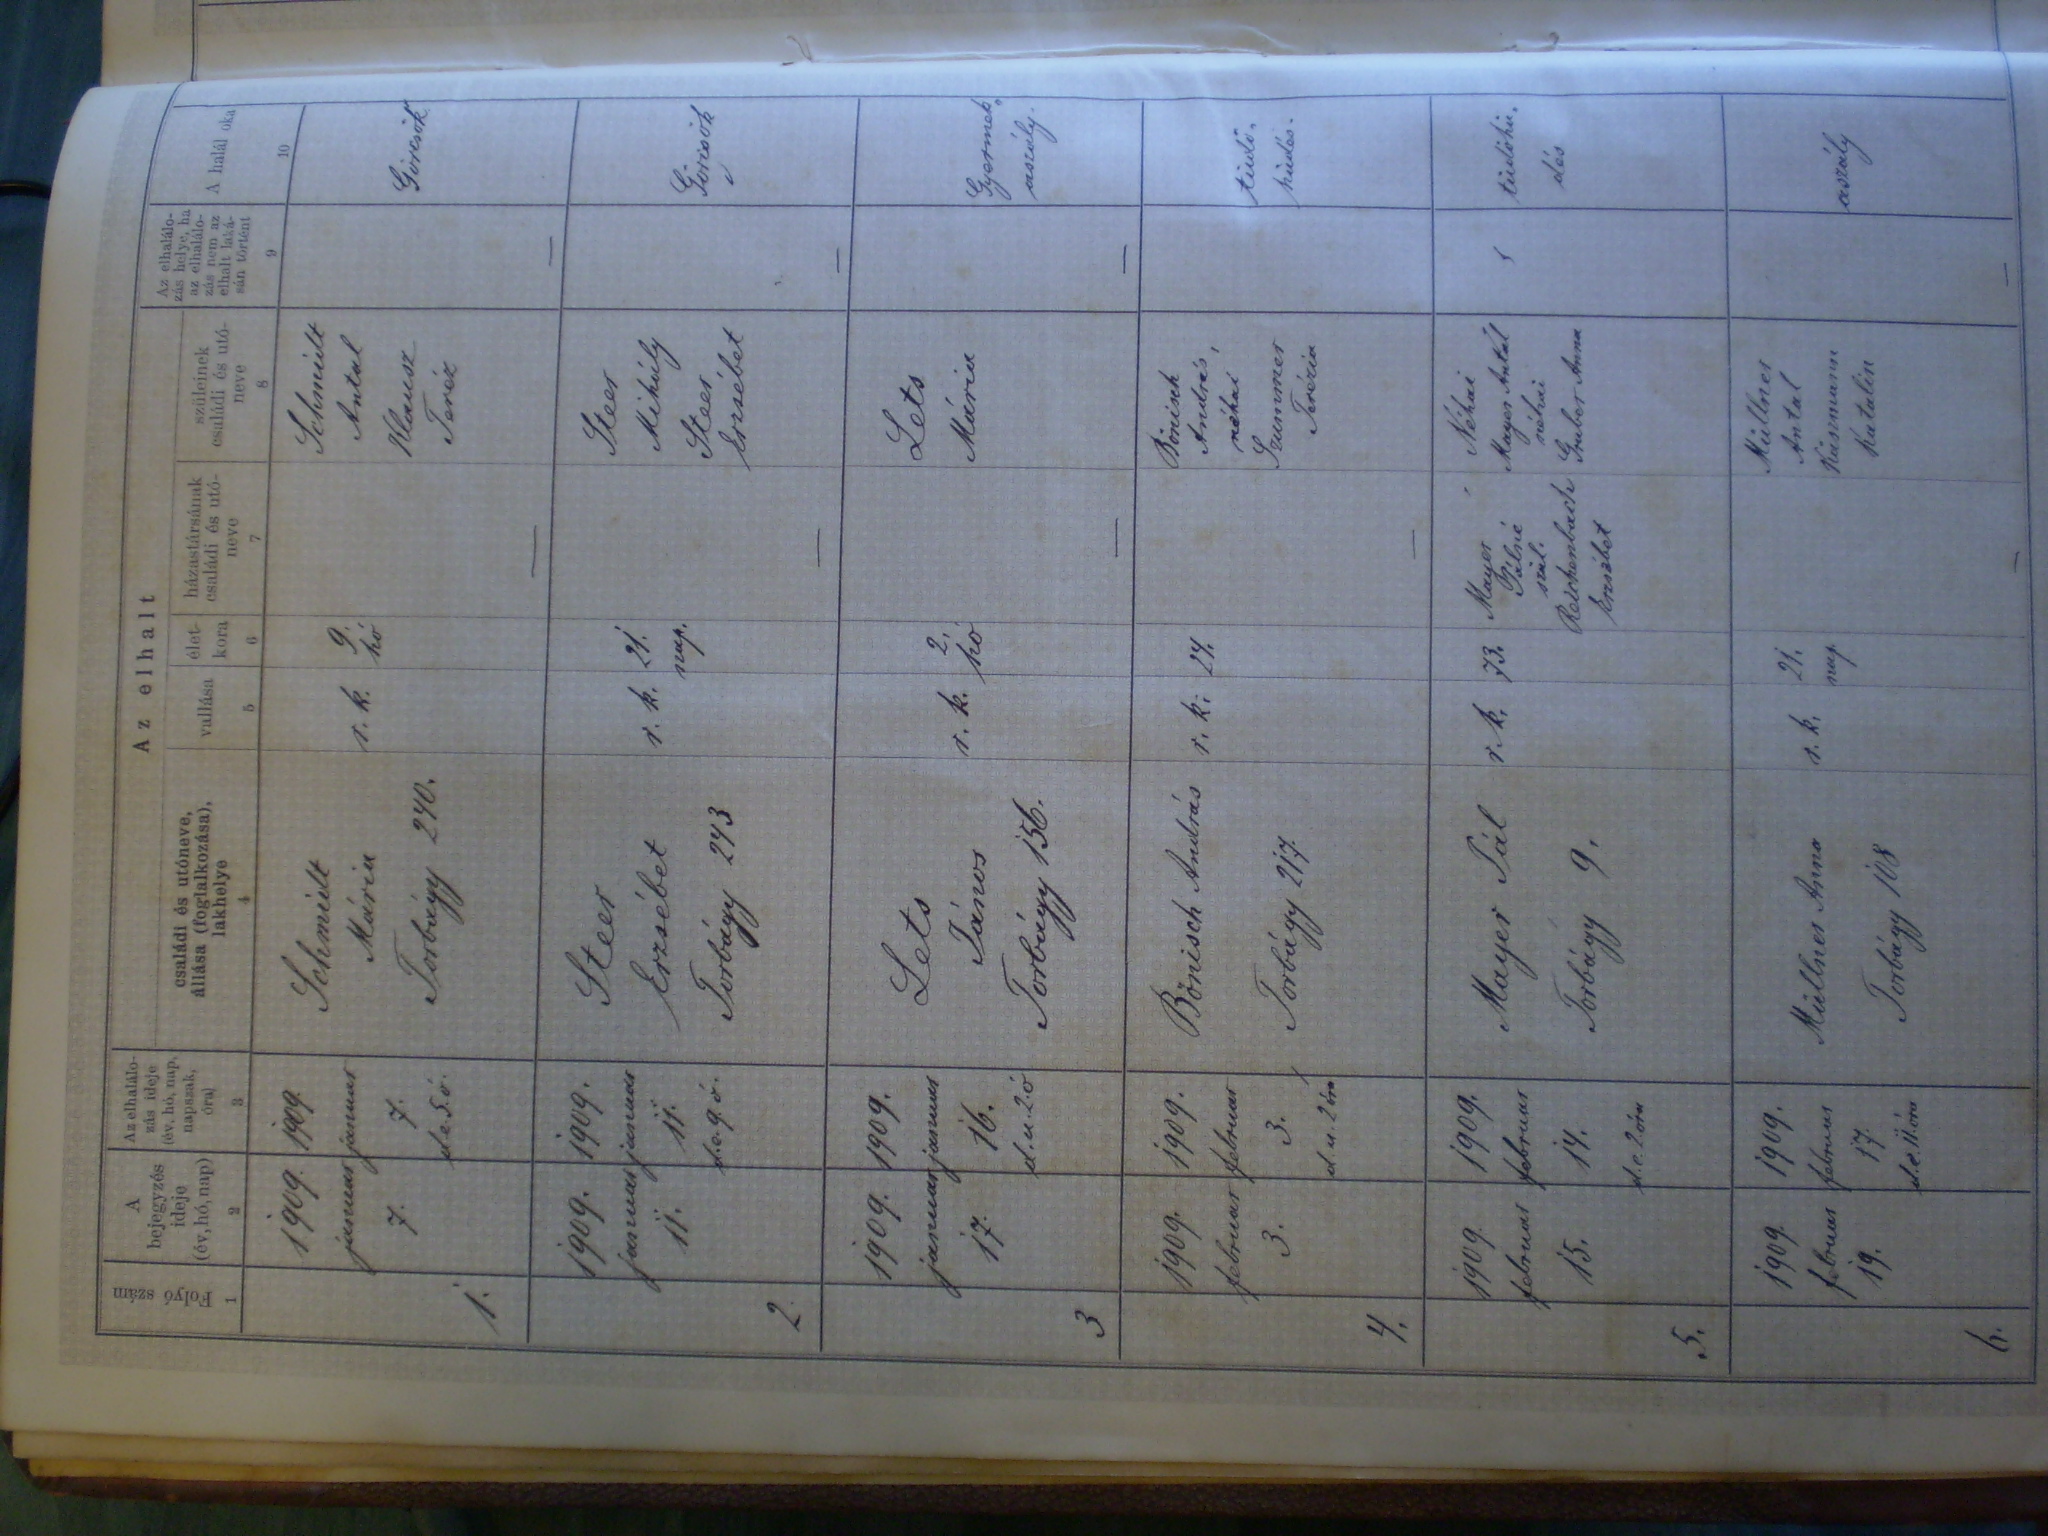 Folyó szám
A
bejegyzés
ideje
(év, hó, nap)
Az elhaláló-
zás ideje
(év, hó, nap,
napszak,
óra)
Az elhalt
családi és utóneve,
állása (foglalkozása),
lakhelye
vallása
élet-
kora
házastársának
családi és utó-
neve
szüleinek
családi és utó-
neve
Az elhaláló-
zás helye, ha
az elhaláló-
zás nem az
elhalt laká-
sán történt
A halál oka
1
2
3
4
5
6
7
8
9
10
1.
1909.
januar
7.
1909.
januar
7.
d.e. 5. ó.
Schmidt
Mária
Torbágy 240.
r. k.
9.
hó
—
Schmidt
Antal
Klausz
Teréz
—
Görcsök
2.
1909.
januar
11.
1909.
januar
11.
d.e. 9. ó.
Steer
Erzsébet
Torbágy 243
r. k.
21.
nap.
—
Steer
Mihály
Steer
Erzsébet
—
Görcsök
3
1909.
januar
17.
1909.
januar
16.
d.u. 2. ó
Lets
János
Torbágy 156.
r. k.
2.
hó
—
Lets
Mária
—
Gyermek
aszály.
4.
1909.
februar
3.
1909.
februar
3.
d.u. 2 óra
Bönisch András
Torbágy 217.
r. k.
27.
—
Bönisch
András,
néhai
Terézia
tüdő-
5.
1909.
februar
15.
1909.
februar
14.
d.e. 2 óra
Mayer Pál
Torbágy 9.
r. k.
73.
Mayer
Pálné
szül.
Reichenbach
Erzsébet
Néhai
Mayer Antal
néhai
Gruber Anna
tüdőhü-
dés
6.
1909.
februar
19.
1909.
februar
17.
d.e. 11. óra
Müllner Anna
Torbágy 108
r. k.
21.
nap
—
Müllner
Antal
Katalin
—
aszály